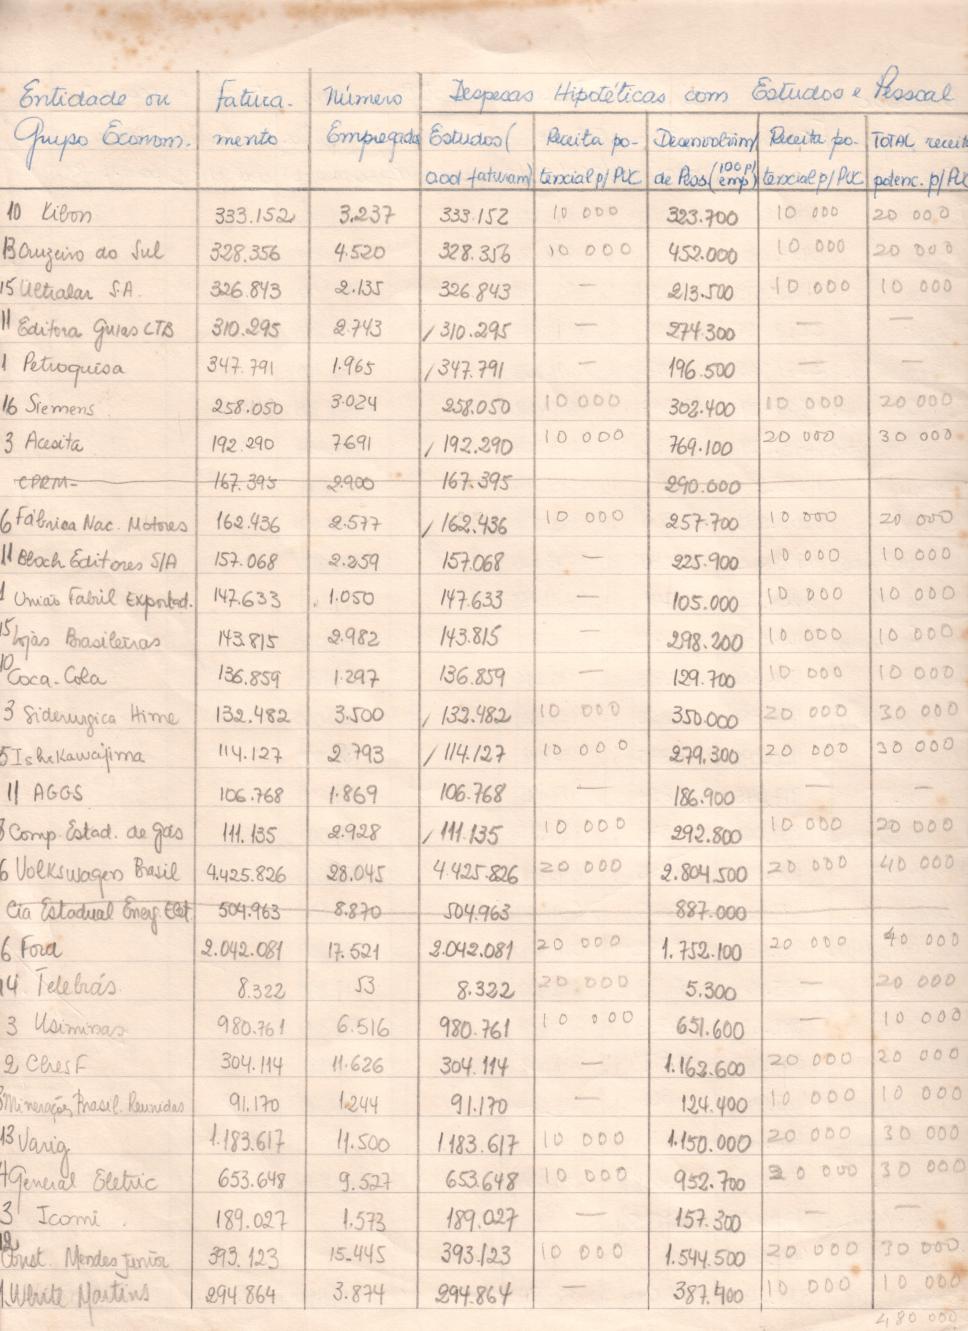 Entidade ou Fatura- Número Despesas Hipotéticas com Estudos e Pessoal
Grupo Econom. mento Empregados Estudos( Receita po- Desenvolvim/ Receita po- TOTAL receita
tencial p/ PUC de Pess(100 p/ emp) tencial p/ PUC potenc. p/ PUC
10 Kibon 333.152 3.237 333.152 10 000 323.700 10 000 20 000
13 Cruzeiro do Sul 328.356 4.520 328.356 10 000 452.000 10 000 20 000
15 Ultralar S.A. 326.843 2.135 326.843 — 213.500 10 000 10 000
11 Editora Guias LTB 310.295 2.743 / 310.295 — 274.300 — —
1 Petroquisa 347.791 1.965 / 347.791 — 196.500 — —
16 Siemens 258.050 3.024 258.050 10 000 302.400 10 000 20 000
3 Acesita 192.290 7691 / 192.290 10 000 769.100 20 000 30 000
CPRM- 167.395 2.900 167.395 290.000
6 Fábrica Nac. Motores 162.436 2.577 / 162.436 10 000 257.700 10 000 20 000
11 Bloch Editores S/A 157.068 2.259 157.068 — 225.900 10 000 10 000
1 União Fabril Exportad. 147.633 1.050 147.633 — 105.000 10 000 10 000
15 Lojas Brasileiras 143.815 2.982 143.815 — 298.200 10 000 10 000
10 Coca-Cola 136.859 1.297 136.859 — 129.700 10 000 10 000
3 Siderurgica Hime 132.482 3.500 / 132.482 10 000 350.000 20 000 30 000
5 Ishekawajima 114.127 2.793 / 114.127 10 000 279.300 20 000 30 000
11 AGGS 106.768 1.869 106.768 — 186.900 — —
Comp. Estad. de gás 111.135 2.928 / 111.135 10 000 292.800 10 000 20 000
6 Volkswagen Brasil 4.425.826 28.045 4.425.826 20 000 2.804.500 20 000 40 000
Cia Estadual Energ. Elet. 504.963 8.870 504.963 887.000
6 Ford 2.042.081 17.521 2.042.081 20 000 1.752.100 20 000 40 000
14 Telebrás 8.322 53 8.322 20 000 5.300 — 20 000
3 Usiminas 980.761 6.516 980.761 10 000 651.600 — 10 000
2 Chesf 304.114 11.626 304.114 — 1.162.600 20 000 20 000
Mineraçōes Brasil. Reunidas 91.170 1.244 91.170 — 124.400 10 000 10 000
13 Varig 1.183.617 11.500 1183.617 10 000 1.150.000 20 000 30 000
4 General Eletric 653.648 9.527 653.648 10 000 952.700 20 000 30 000
3 Icomi 189.027 1.573 189.027 — 157.300 — —
12 Const. Mendes Junior 393.123 15.445 393.123 10 000 1.544.500 20 000 30 000
1 White Martins 294 864 3.874 294.864 — 387.400 10 000 10 000
480 000